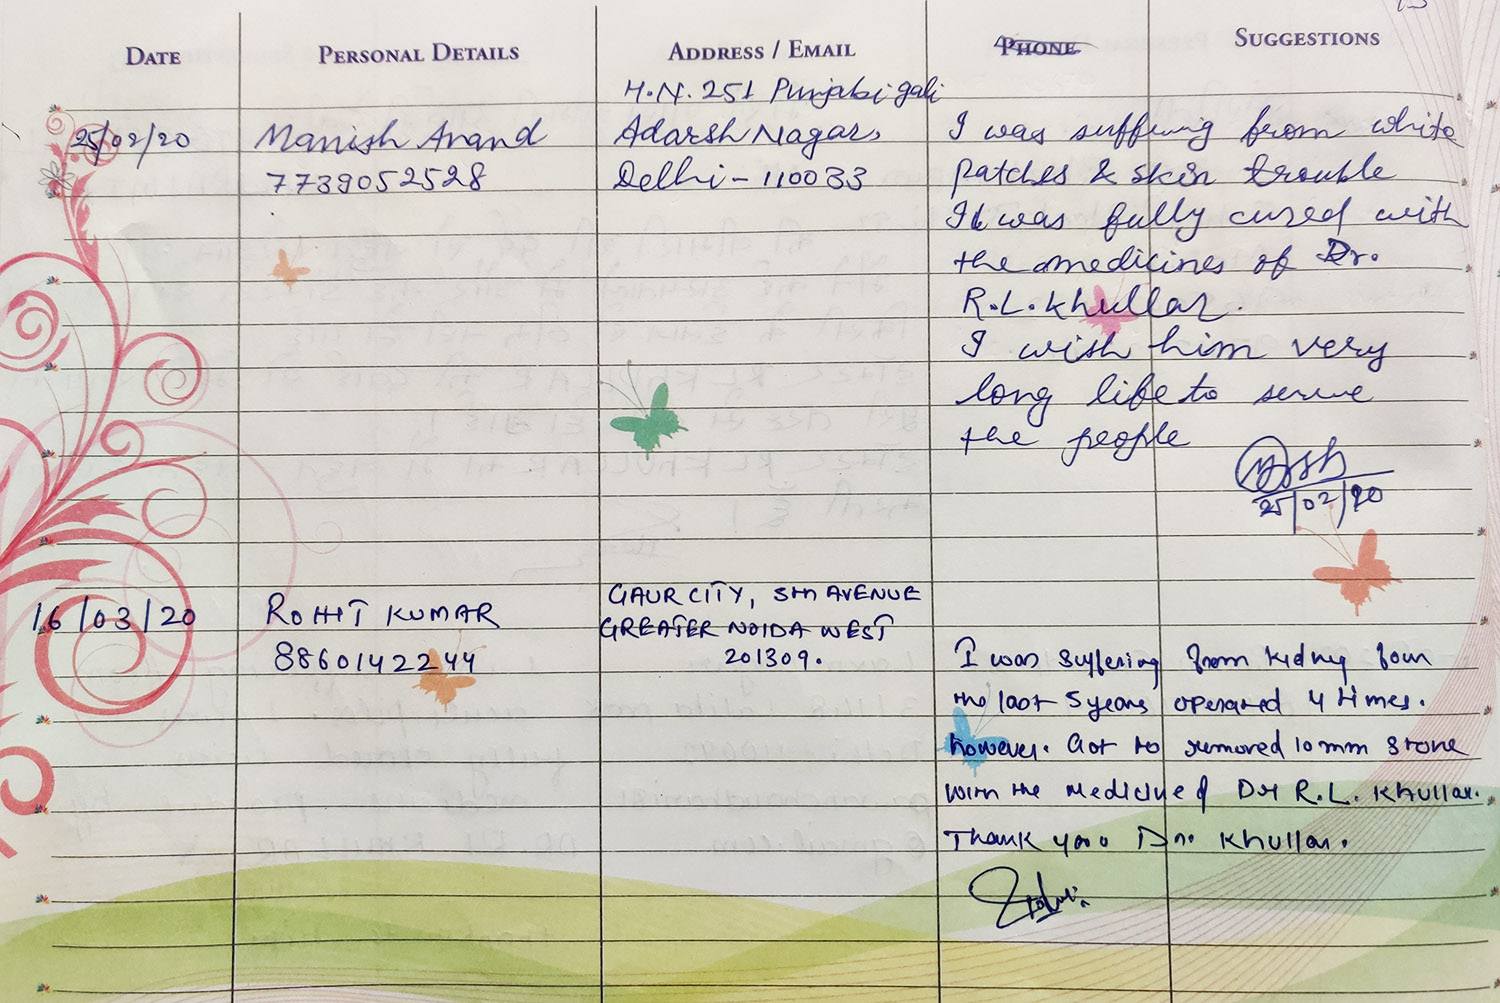 DATE PERSONAL DETAILS ADDRESS / EMAIL PHONE SUGGESTIONS
H.N. 251 Punjabi gali
25/02/20 Manish Anand Adarsh Nagar,
7739052528 Delhi - 110033
I was suffering from white
patches & skin trouble
It was fully cured with
the medicines of Dr.
R.L. Khullar.
I wish him very
long life to serve
the people
25/02/20
16/03/20 ROHIT KUMAR GAUR CITY, 5th AVENUE
GREATER NOIDA WEST
8860142244 201309.
I was suffering from kidney from
the last 5 years operated 4 times.
however. Got to removed 10 mm stone
with the Medicine of Dr R.L. Khullar.
Thank you Dr. Khullar.